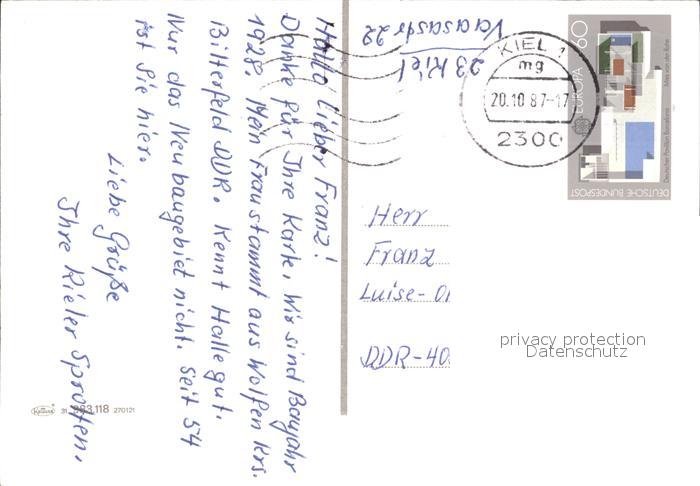 Hallo lieber Franz!
Danke für Ihre Karte. Wir sind Baujahr
1928. Mein Frau stammt aus Wolfen Krs.
Bitterfeld DDR. Kennt Halle gut.
Nur das Neubaugebiet nicht. Seit 54
ist Sie hier.
Liebe Grüße
Ihre Kieler Sprotten.
Vaasastr 22
23 Kiel
KIEL 1
mg
20.10.87-17
2300
60
EUROPA
Deutscher Pavillon Barcelona
Mies van der Rohe
DEUTSCHE BUNDESPOST
Herr
Franz
Luise-O
DDR-40
privacy protection
Datenschutz
31 883.118 270121